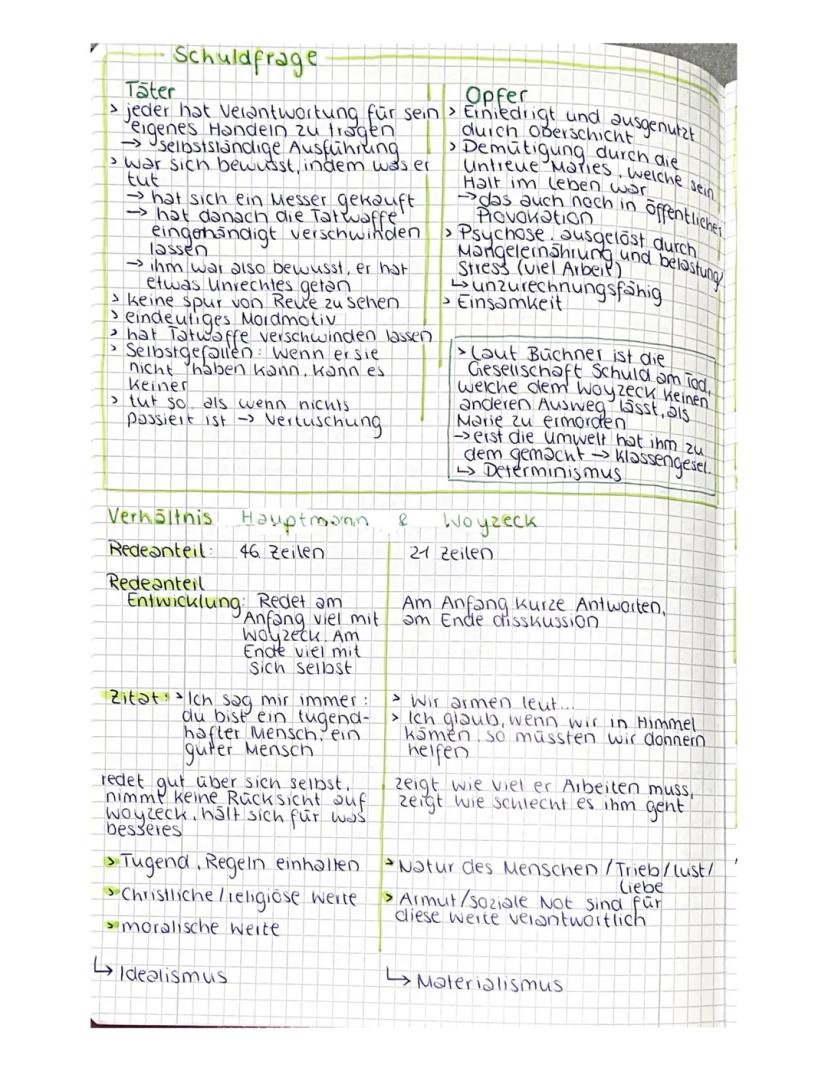 Schuldfrage
Täter
> jeder hat Verantwortung für sein
eigenes Handeln zu tragen
→ selbstständige Ausführung
> war sich bewusst, indem was er
tut
→ hat sich ein Messer gekauft
→ hat danach die Tatwaffe
eingehändigt verschwinden
lassen
→ ihm war also bewusst, er hat
etwas Unrechtes getan
> keine Spur von Reue zu sehen
> eindeutiges Mordmotiv
> hat Tatwaffe verschwinden lassen
> Selbstgefallen: Wenn er sie
nicht haben kann, kann es
keiner
> tut so als wenn nichts
passiert ist → Vertuschung
Opfer
> Erniedrigt und ausgenutzt
durch Oberschicht
> Demütigung durch die
Untreue Maries, welche sein
Halt im Leben war
→ das auch noch in öffentlicher
Provokation
> Psychose, ausgelöst durch
Mangelernährung und belastung/
Stress (viel Arbeit)
↳ unzurechnungsfähig
> Einsamkeit
> Laut Büchner ist die
Gesellschaft Schuld am Tod,
welche dem Woyzeck keinen
anderen Ausweg lässt, als
Marie zu ermorden
→ erst die Umwelt hat ihm zu
dem gemacht → Klassengesel.
↳ Determinismus
Verhältnis Hauptmann & Woyzeck
Redeanteil: 46 Zeilen 21 Zeilen
Redeanteil
Entwicklung: Redet am
Anfang viel mit
Woyzeck. Am
Ende viel mit
sich selbst
Am Anfang kurze Antworten,
am Ende disskussion
Zitat: > Ich sag mir immer:
du bist ein tugend-
hafter Mensch, ein
guter Mensch
> Wir armen leut...
> Ich glaub, wenn wir in Himmel
kämen, so müssten wir donnern
helfen
redet gut über sich selbst,
nimmt keine Rücksicht auf
Woyzeck, hält sich für was
besseres
zeigt wie viel er Arbeiten muss,
zeigt wie schlecht es ihm geht
> Tugend, Regeln einhalten
> Christliche / religiöse Werte
> moralische Werte
↳ Idealismus
> Natur des Menschen / Trieb / Lust /
Liebe
> Armut / soziale Not sind für
diese Werte verantwortlich
↳ Materialismus